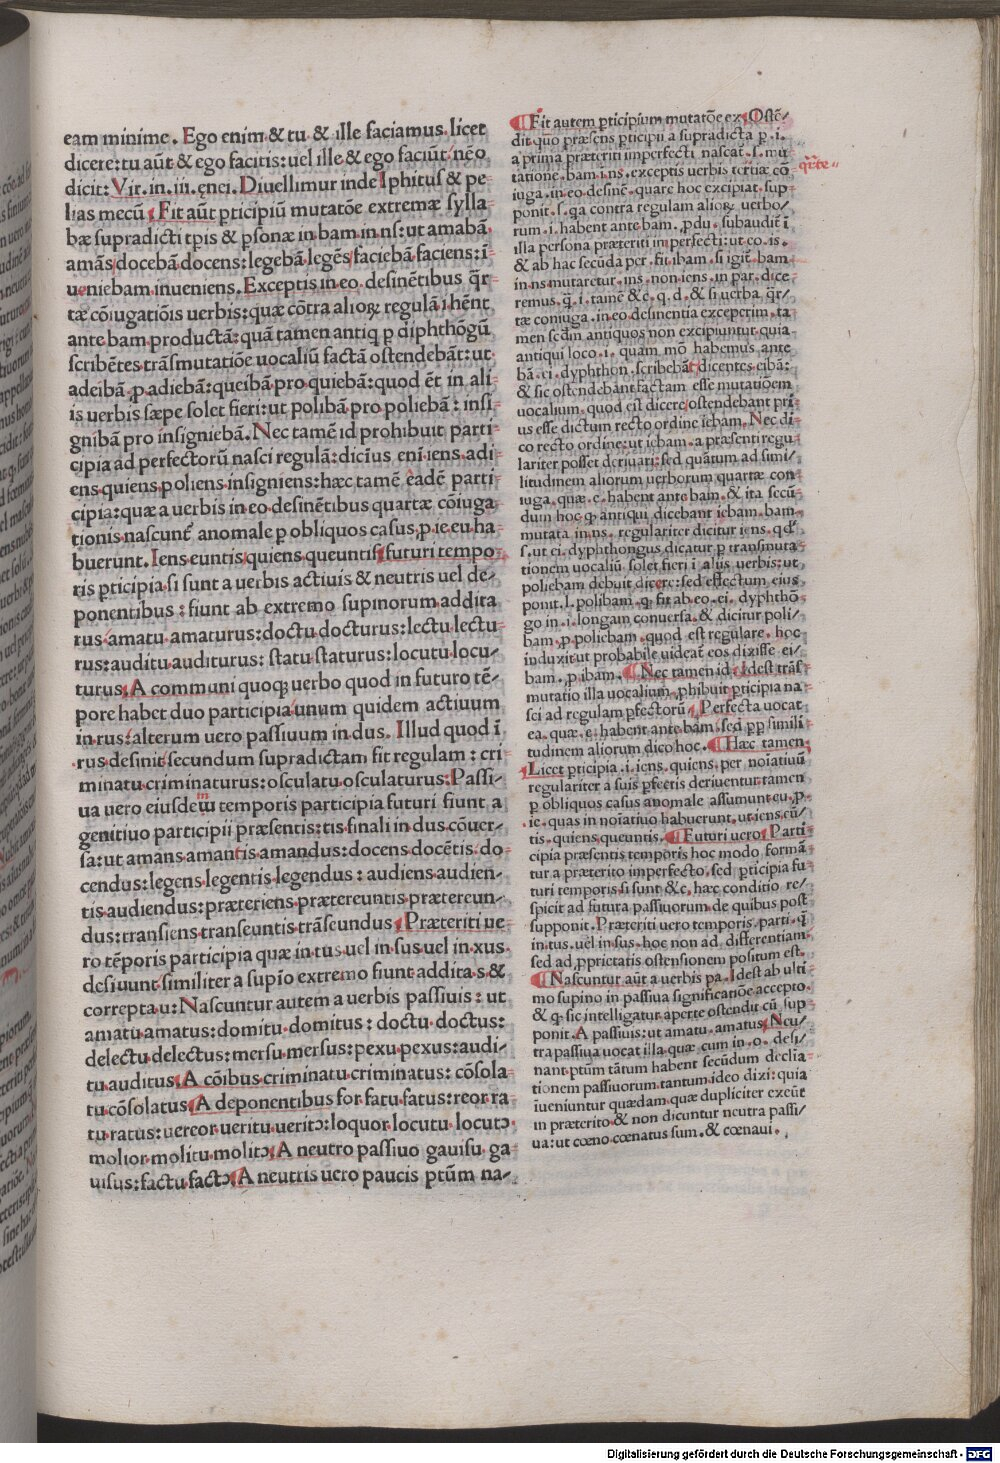 eam minime. Ego enim & tu & ille faciamus. licet
dicere: tu aūt & ego facitis: uel ille & ego faciūt nēo
dicit: Vir. in. iii. enei. Diuellimur inde Iphitus & pe-
lias mecū. Fit aūt pticipiū mutatōe extremæ sylla
bæ supradicti tpis & psonæ in bam in ns: ut amabā
amās docebā docens: legebā legēs faciebā faciens: ī
ueniebam inueniens. Exceptis in eo. desinētibus qr̄
tæ cōiugatiōis uerbis: quæ cōtra alioꝝ regulā i hēnt
ante bam productā: quā tamen antiq p diphthōgū
scribētes trāsmutatiōe uocaliū factā ostendebāt: ut
adeibā. p. adiebā: queibā pro quiebā: quod ēt in ali
is uerbis sæpe solet fieri: ut polibā pro poliebā: insi
gnibā pro insigniebā. Nec tamē id prohibuit parti
cipia ad perfectorū nasci regulā: dicius eni iens. adi
ens quiens poliens insigniens: hæc tamē eadē parti
cipia: quæ a uerbis in eo desinētibus quartæ cōiuga
tionis nascunt̄ anomale p obliquos casus. p. ie. eu ha
buerunt. Iens euntis quiens queuntis futuri tempo
ris pticipia si sunt a uerbis actiuis & neutris uel de-
ponentibus: fiunt ab extremo supinorum addita
rus. amatu. amaturus: doctu docturus: lectu lectu
rus: auditu auditurus: statu staturus: locutu locu-
turus. A communi quoqꝫ uerbo quod in futuro tē-
pore habet duo participia unum quidem actiuum
in rus: alterum uero passiuum in dus. Illud quod ī
.rus desinit secundum supradictam fit regulam: cri
minatu criminaturus: osculatu osculaturus: Passi-
ua uero eiusdem temporis participia futuri fiunt a
genitiuo participii præsentis: tis finali in dus cōuer-
sa: ut amans amantis amandus: docens docētis. do
cendus: legens legentis legendus: audiens audien-
tis audiendus: præteriens prætereuntis prætereun-
dus: transiens transeuntis trāseundus. Præteriti ue
ro tēporis participia quæ in tus uel in sus uel in xus
desinunt similiter a supio extremo fiunt addita s. &
correpta u: Nascuntur autem a uerbis passiuis: ut
amatu amatus: domitu domitus: doctu doctus:
delectu delectus: mersu mersus: pexu pexus: audi-
tu auditus. A cōibus criminatu criminatus: cōsola
tu cōsolatus. A deponentibus for fatu fatus: reor ra
tu ratus: uereor ueritu ueritꝰ: loquor locutu locutꝰ
molior molitu molitꝰ. A neutro passiuo gauisu. ga
uisus: factu factꝰ. A neutris uero paucis ptūm na-
Fit autem pticipium mutatōe ex. Ostē-
dit quō præsens pticipii a supradicta p. i.
a prima præteriti imperfecti nascat̄. i. mu
tatione. bam. i. ns. exceptis uerbis tertiæ cō
qrte
iuga. in eo desinē. quare hoc excipiat. sup
ponit. s. qa contra regulam alioꝝ uerbo-
rum. i. habent ante bam. pdu. subaudit̄ i
illa persona præteriti in perfecti: ut eo. is.
& ab hac secūda per. fit ibam. si igit̄ bam
in ns mutaretur. ins. non iens. in par. dice
remus. q̄. i. tamē &c. q. d. & si uerba. qr̄-
tæ coniuga. in eo desinentia exceperim. ta
men scdm antiquos non excipiuntur quia
antiqui loco. i. quam mō habemus ante
bā. ei. dyphthon. scribebāt dicentes eibā:
& sic ostendebant factam esse mutatiōem
uocalium. quod est dicere ostendebant pri
us esse dictum recto ordine iebam. Nec di
co recto ordine: ut iebam. a præsenti regu
lariter posset deriuari: sed quātum ad simi-
litudinem aliorum uerborum quartæ con
iuga. quæ. e. habent ante bam. & ita secū
dum hoc ꝙ antiqui dicebant iebam. bam
mutata in ns. regulariter dicitur iens. qd̄
s. ut ei. dyphthongus dicatur p transmuta
tionem uocaliū solet fieri i aliis uerbis: ut
poliebam debuit dicere: sed effectum eius
ponit. l. polibam. ꝙ fit ab eo. ei. dyphthō
go in. i. longam conuersa. & dicitur poli
bam. p poliebam. quod est regulare. hoc
induxit ut probabile uideat̄ eos dixisse ei-
bam. p ibam. Nec tamen id. Idest trās
mutatio illa uocalium. phibuit pticipia na
sci ad regulam pfectorū. Perfecta uocat
ea. quæ. e. habent ante bam. sed pp simili
tudinem aliorum dico hoc. Hæc tamen
Licet pticipia. i. iens. quiens. per noiatiuū
regulariter a suis pfectis deriuentur. tamen
p obliquos casus anomale assumunt eu. p.
ie. quas in noiatiuo habuerunt. ut iens. eū-
tis. quiens queuntis. Futuri uero. Parti
cipia præsentis temporis hoc modo formā
tur a præterito imperfecto. sed pticipia fu
turi temporis si sunt &c. hæc conditio re-
spicit ad futura passiuorum de quibus post
supponit. Præteriti uero temporis. parti. q̄
in. tus. uel in sus. hoc non ad differentiam
sed ad pprietatis ostensionem positum est.
Nascuntur aūt a uerbis pa. Idest ab ulti
mo supino in passiua significatiōe accepto.
& ꝙ sic intelligatur aperte ostendit cū sup
ponit. A passiuis: ut amatu. amatus. Neu
tra passiua uocat illa quæ cum in. o. desi-
nant ptūm tātum habent secūdum declia
tionem passiuorum tantum. ideo dixi: quia
iueniuntur quædam quæ dupliciter exeūt
in præterito & non dicuntur neutra passi-
ua: ut cœno cœnatus sum. & cœnaui.
Digitalisierung gefördert durch die Deutsche Forschungsgemeinschaft - DFG